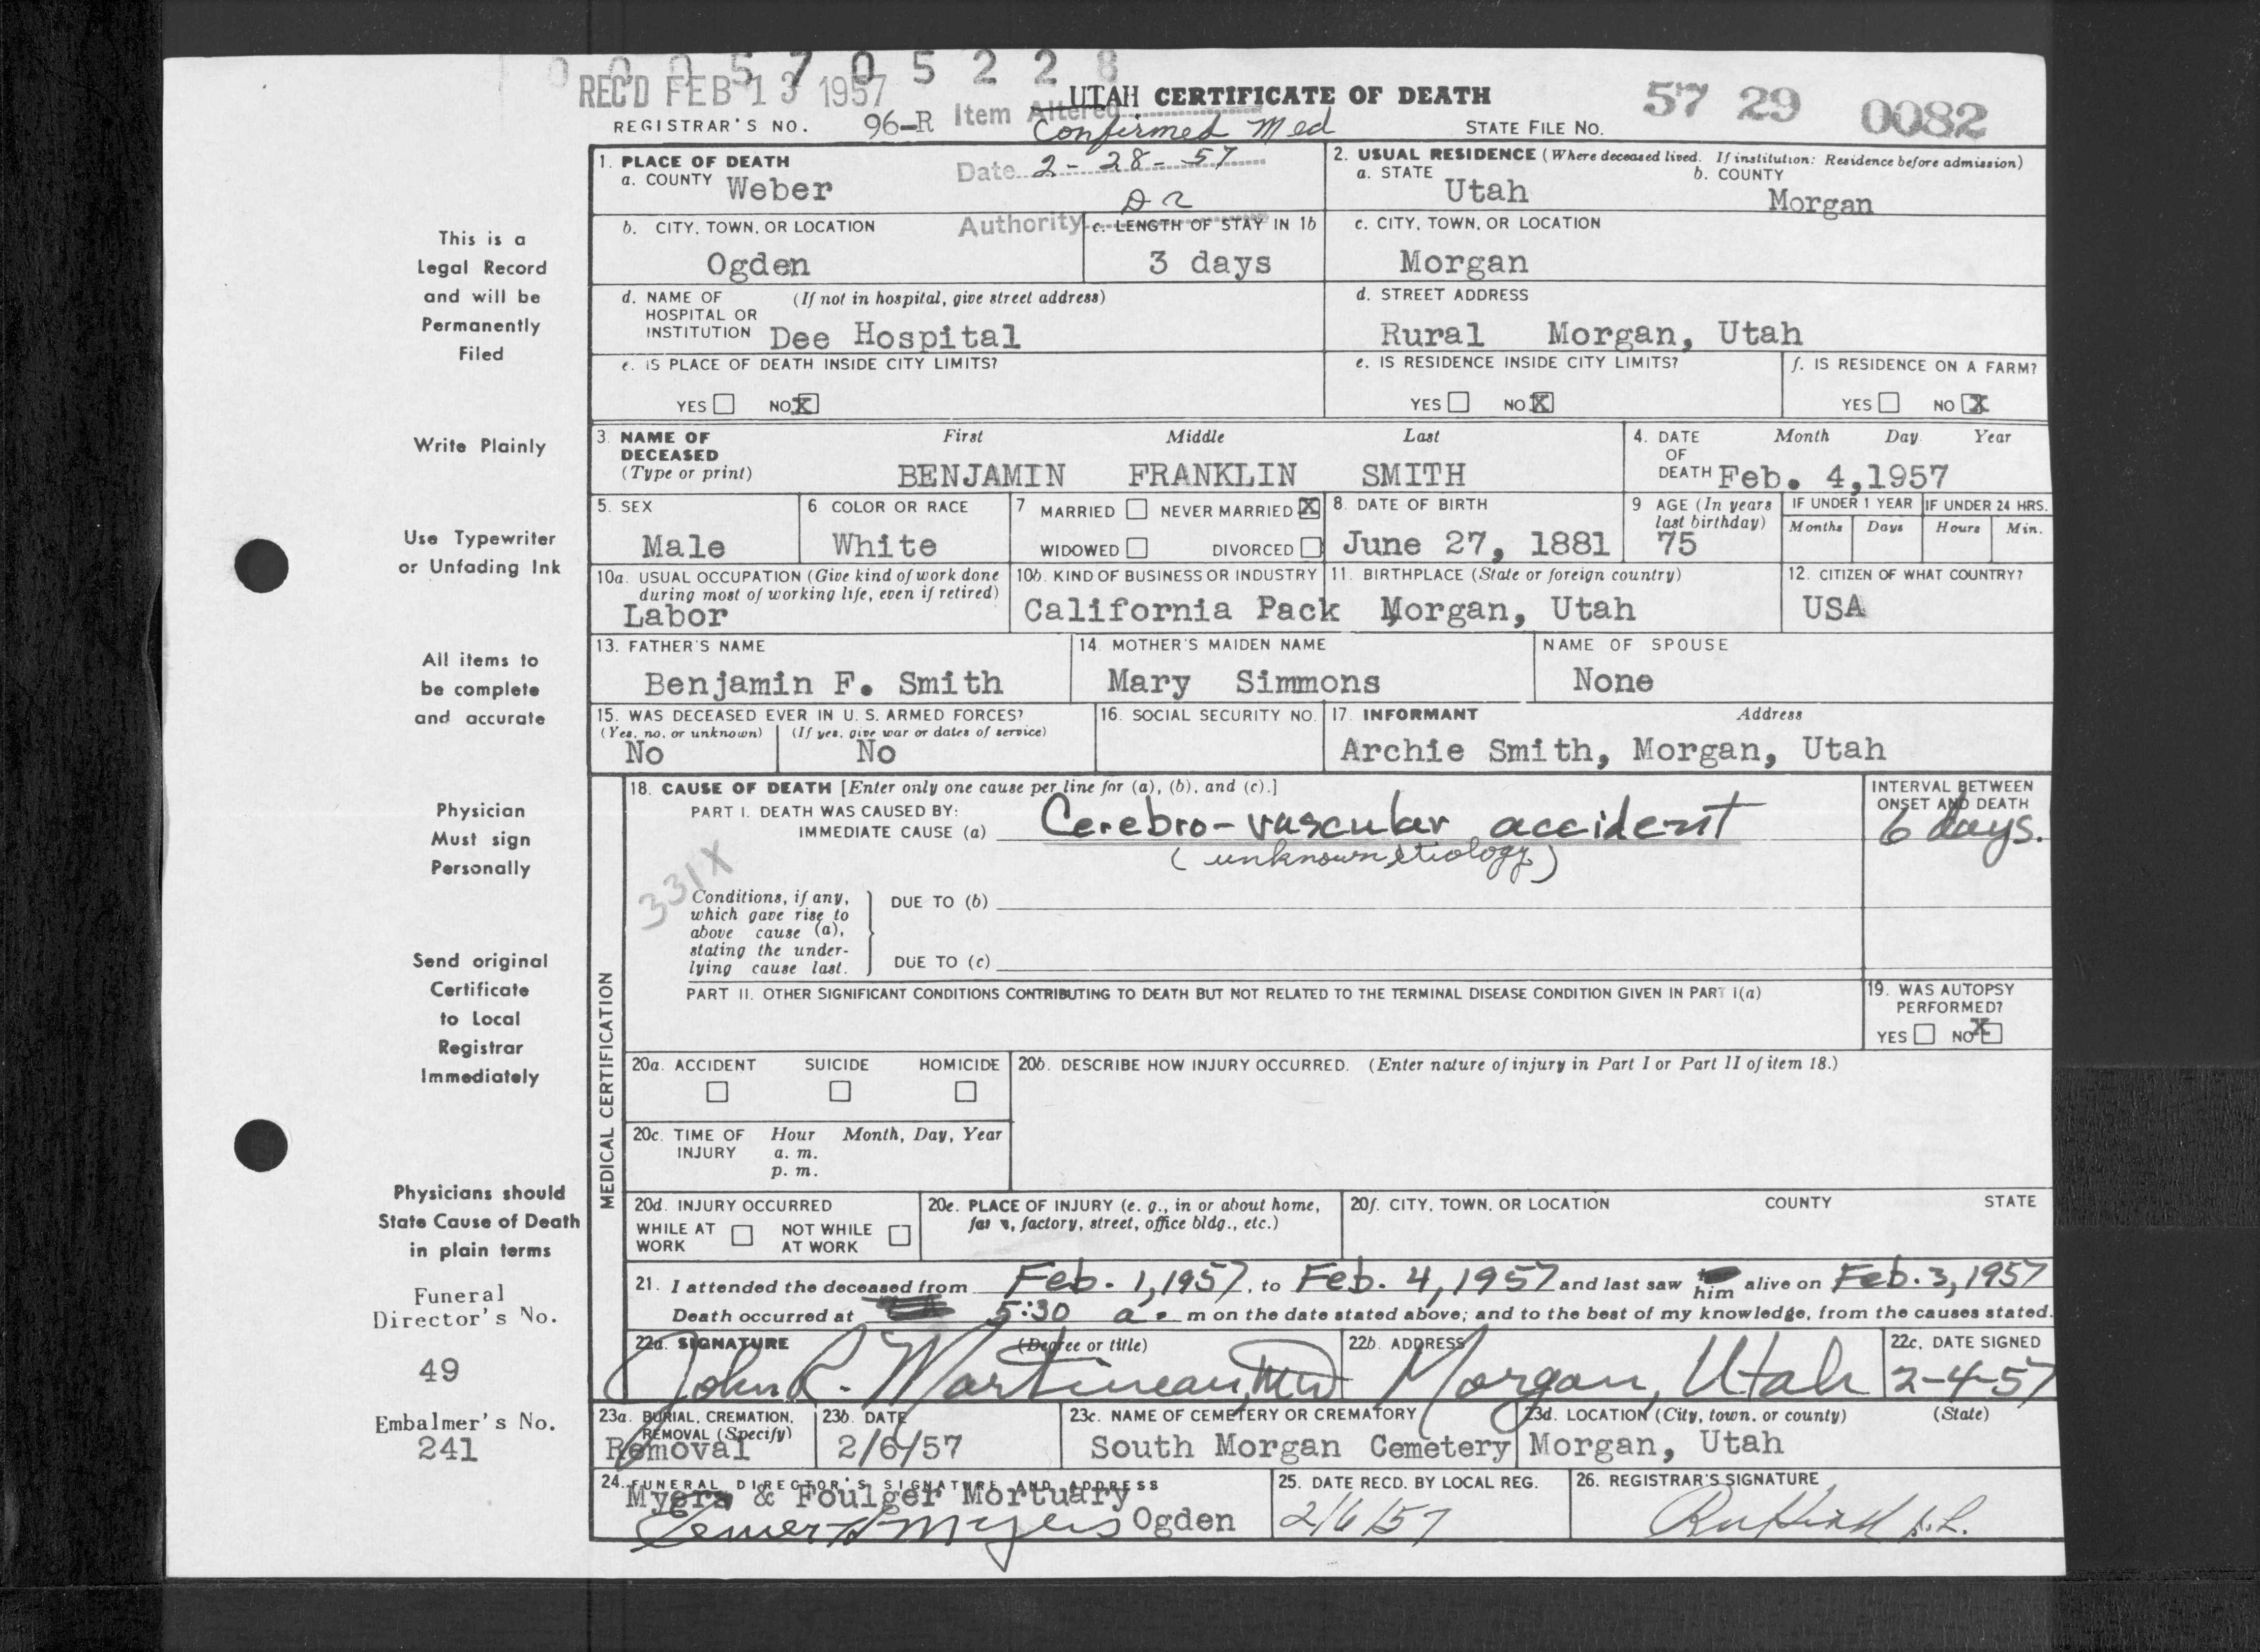 0 0 0 5 7 0 5 2 2 8
REC'D FEB 13 1957
UTAH CERTIFICATE OF DEATH
57 29 0082
REGISTRAR'S NO. 96-R
Item Altered
Confirmed Med
STATE FILE NO.
Date 2-28-57
Authority
1. PLACE OF DEATH
a. COUNTY Weber
2. USUAL RESIDENCE (Where deceased lived. If institution: Residence before admission)
a. STATE Utah
b. COUNTY Morgan
b. CITY, TOWN, OR LOCATION
Ogden
c. LENGTH OF STAY IN 1b
3 days
c. CITY, TOWN, OR LOCATION
Morgan
d. NAME OF HOSPITAL OR INSTITUTION (If not in hospital, give street address)
Dee Hospital
d. STREET ADDRESS
Rural Morgan, Utah
e. IS PLACE OF DEATH INSIDE CITY LIMITS?
YES NO X
e. IS RESIDENCE INSIDE CITY LIMITS?
YES NO X
f. IS RESIDENCE ON A FARM?
YES NO X
3. NAME OF DECEASED (Type or print)
First Middle Last
BENJAMIN FRANKLIN SMITH
4. DATE OF DEATH
Month Day Year
Feb. 4,1957
5. SEX
Male
6 COLOR OR RACE
White
7 MARRIED NEVER MARRIED X
WIDOWED DIVORCED
8. DATE OF BIRTH
June 27, 1881
9 AGE (In years last birthday)
75
IF UNDER 1 YEAR
Months Days
IF UNDER 24 HRS.
Hours Min.
10a. USUAL OCCUPATION (Give kind of work done during most of working life, even if retired)
Labor
10b. KIND OF BUSINESS OR INDUSTRY
California Pack
11. BIRTHPLACE (State or foreign country)
Morgan, Utah
12. CITIZEN OF WHAT COUNTRY?
USA
13. FATHER'S NAME
Benjamin F. Smith
14. MOTHER'S MAIDEN NAME
Mary Simmons
NAME OF SPOUSE
None
15. WAS DECEASED EVER IN U. S. ARMED FORCES?
(Yes, no, or unknown) (If yes, give war or dates of service)
No No
16. SOCIAL SECURITY NO.
17. INFORMANT Address
Archie Smith, Morgan, Utah
MEDICAL CERTIFICATION
18. CAUSE OF DEATH [Enter only one cause per line for (a), (b), and (c).]
PART I. DEATH WAS CAUSED BY:
IMMEDIATE CAUSE (a) Cerebro-vascular accident
(unknown etiology)
INTERVAL BETWEEN ONSET AND DEATH
6 days.
331X
Conditions, if any, which gave rise to above cause (a), stating the underlying cause last.
DUE TO (b)
DUE TO (c)
PART II. OTHER SIGNIFICANT CONDITIONS CONTRIBUTING TO DEATH BUT NOT RELATED TO THE TERMINAL DISEASE CONDITION GIVEN IN PART I(a)
19. WAS AUTOPSY PERFORMED?
YES NO X
20a. ACCIDENT SUICIDE HOMICIDE
20b. DESCRIBE HOW INJURY OCCURRED. (Enter nature of injury in Part I or Part II of item 18.)
20c. TIME OF INJURY
Hour Month, Day, Year
a. m.
p. m.
20d. INJURY OCCURRED
WHILE AT WORK NOT WHILE AT WORK
20e. PLACE OF INJURY (e. g., in or about home, farm, factory, street, office bldg., etc.)
20f. CITY, TOWN, OR LOCATION COUNTY STATE
21. I attended the deceased from Feb. 1, 1957, to Feb. 4, 1957 and last saw him alive on Feb. 3, 1957
Death occurred at 5:30 a. m on the date stated above; and to the best of my knowledge, from the causes stated.
22a. SIGNATURE (Degree or title)
John R. Martineau, MD
22b. ADDRESS
Morgan, Utah
22c. DATE SIGNED
2-4-57
23a. BURIAL, CREMATION, REMOVAL (Specify)
Removal
23b. DATE
2/6/57
23c. NAME OF CEMETERY OR CREMATORY
South Morgan Cemetery
23d. LOCATION (City, town, or county) (State)
Morgan, Utah
24. FUNERAL DIRECTOR'S SIGNATURE AND ADDRESS
Myers & Foulger Mortuary
Myers Ogden
25. DATE RECD. BY LOCAL REG.
2/6/57
26. REGISTRAR'S SIGNATURE
This is a
Legal Record
and will be
Permanently
Filed
Write Plainly
Use Typewriter
or Unfading Ink
All items to
be complete
and accurate
Physician
Must sign
Personally
Send original
Certificate
to Local
Registrar
Immediately
Physicians should
State Cause of Death
in plain terms
Funeral
Director's No.
49
Embalmer's No.
241